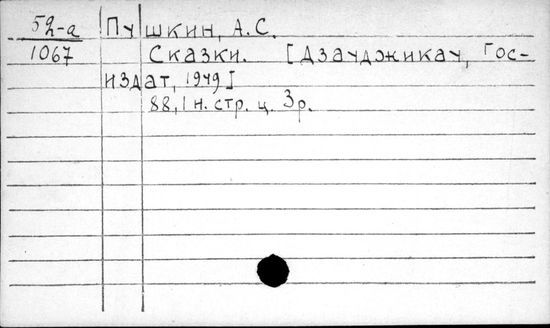 52-а Пушкин, А.С.
1067 Сказки. [Дзауджикау, Гос-
издат, 1949]
88, 1 н. стр. ц. 3р.